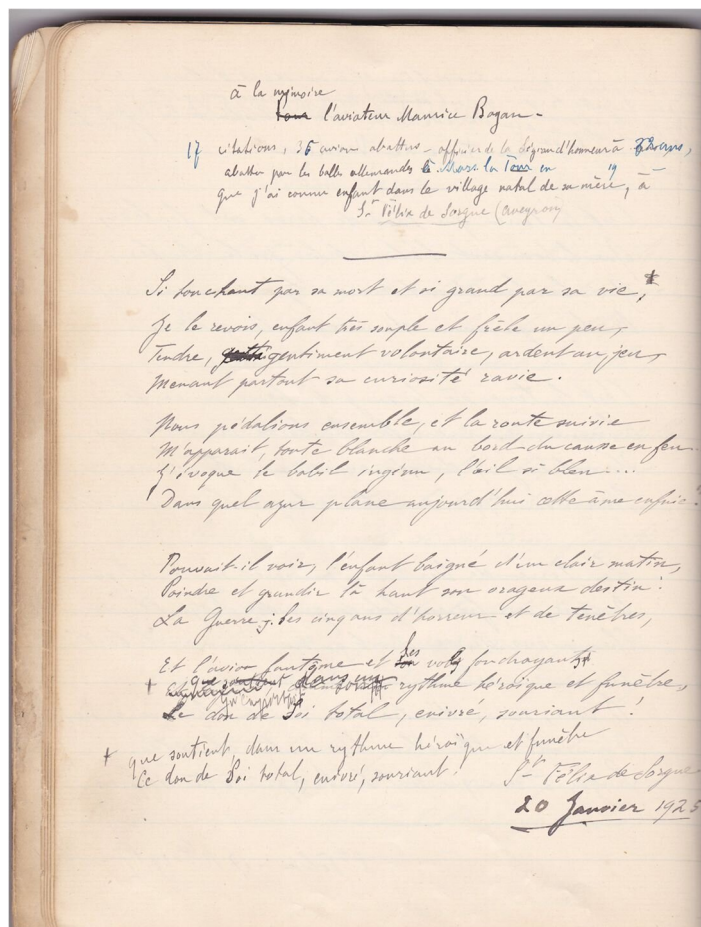 à la mémoire
l'aviateur Maurice Bogan -
17 citations, 36 avions abattus - officier de la Légion d'honneur à
abattu par les balles allemandes à Mars la Tour en 19
que j'ai connu enfant dans le village natal de sa mère, à
St Félix de Sorgue (Aveyron)
Si touchant par sa mort et si grand par sa vie,
Je le revois, enfant très souple et frêle un peu,
Tendre, gentiment volontaire, ardent au jeu,
Menant partout sa curiosité ravie.
Nous pédalions ensemble, et la route suivie
M'apparait, toute blanche au bord du causse en feu
J'évoque le babil ingénu, l'œil si bleu....
Dans quel azur plane aujourd'hui cette âme enfuie?
Pouvait-il voir, l'enfant baigné d'un clair matin,
Poindre et grandir là haut son orageux destin!
La Guerre ; les cinq ans d'horreur et de tenèbres,
Et l'avion fantôme et les vols foudroyants
+ rythme héroïque et funèbre,
Le don de Soi total, enivré, souriant!
+ que soutient, dans un rythme héroïque et funèbre
Le don de Soi total, enivré, souriant!
St Félix de Sorgue
20 Janvier 1925